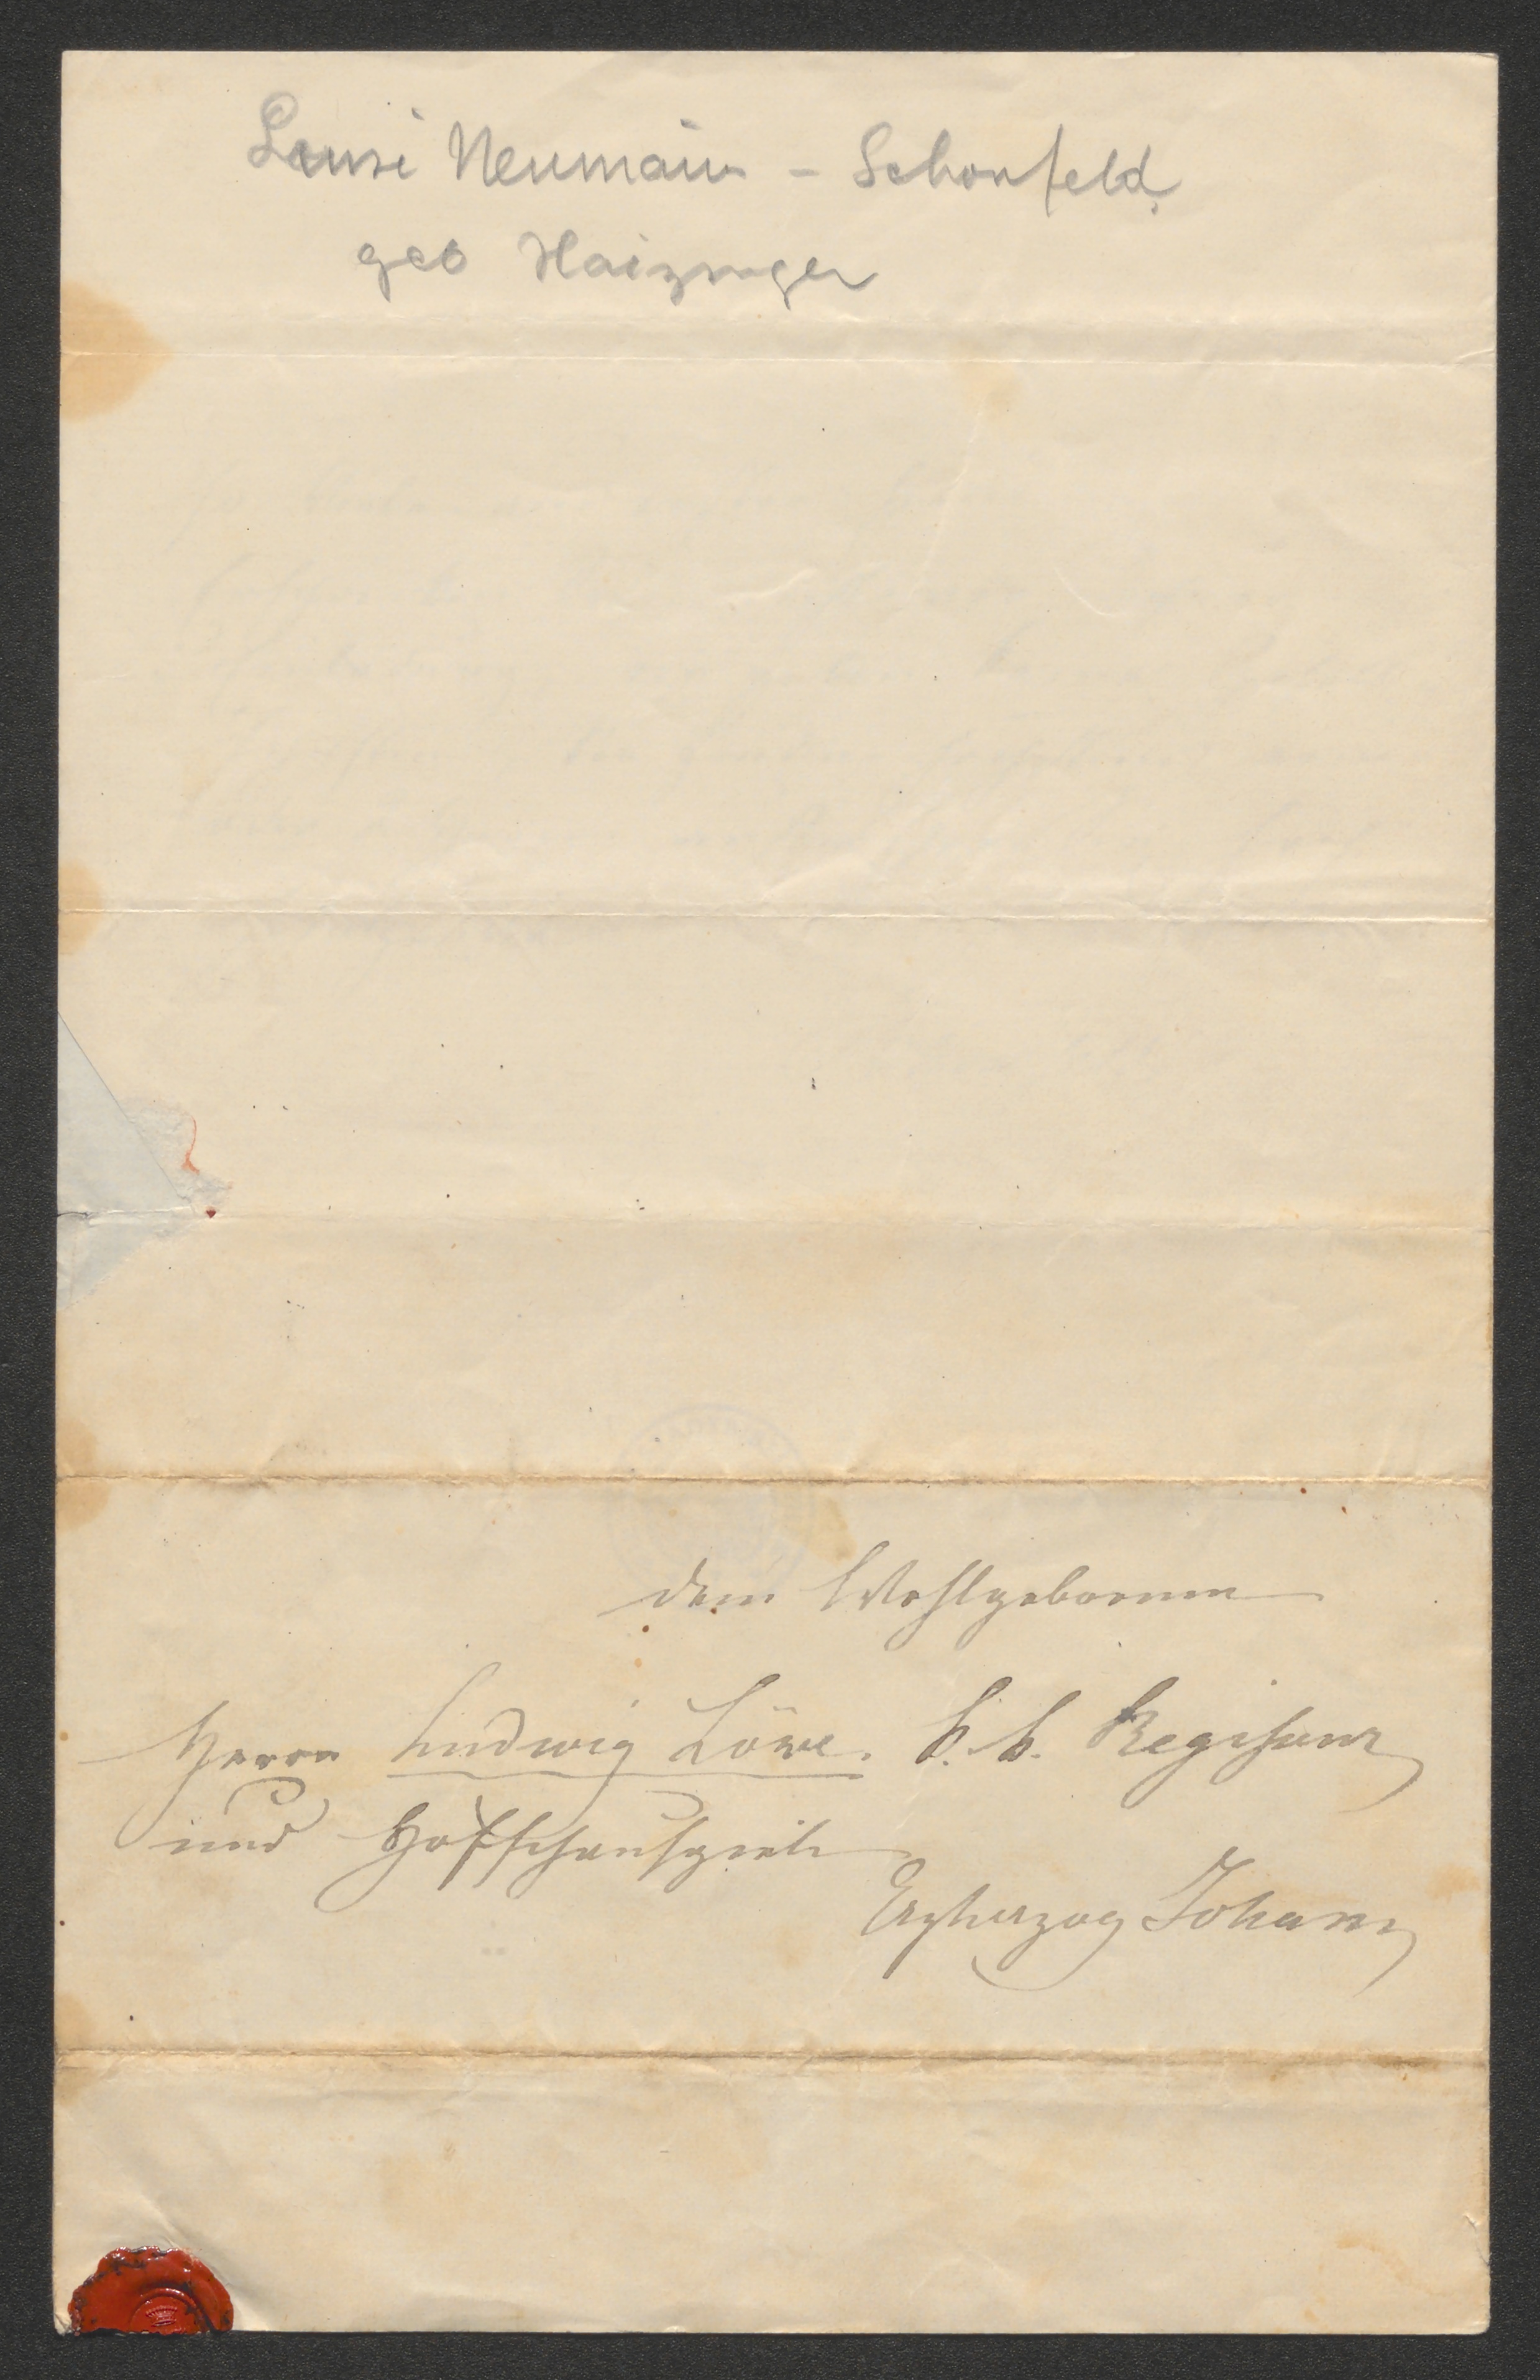 Louise Neumann - Schönfeld
geb Haizinger
dem Wohlgebornen
Herrn Ludwig Löwe. k. k. Regisseur
und Hofschauspieler
Erzherzog Johann